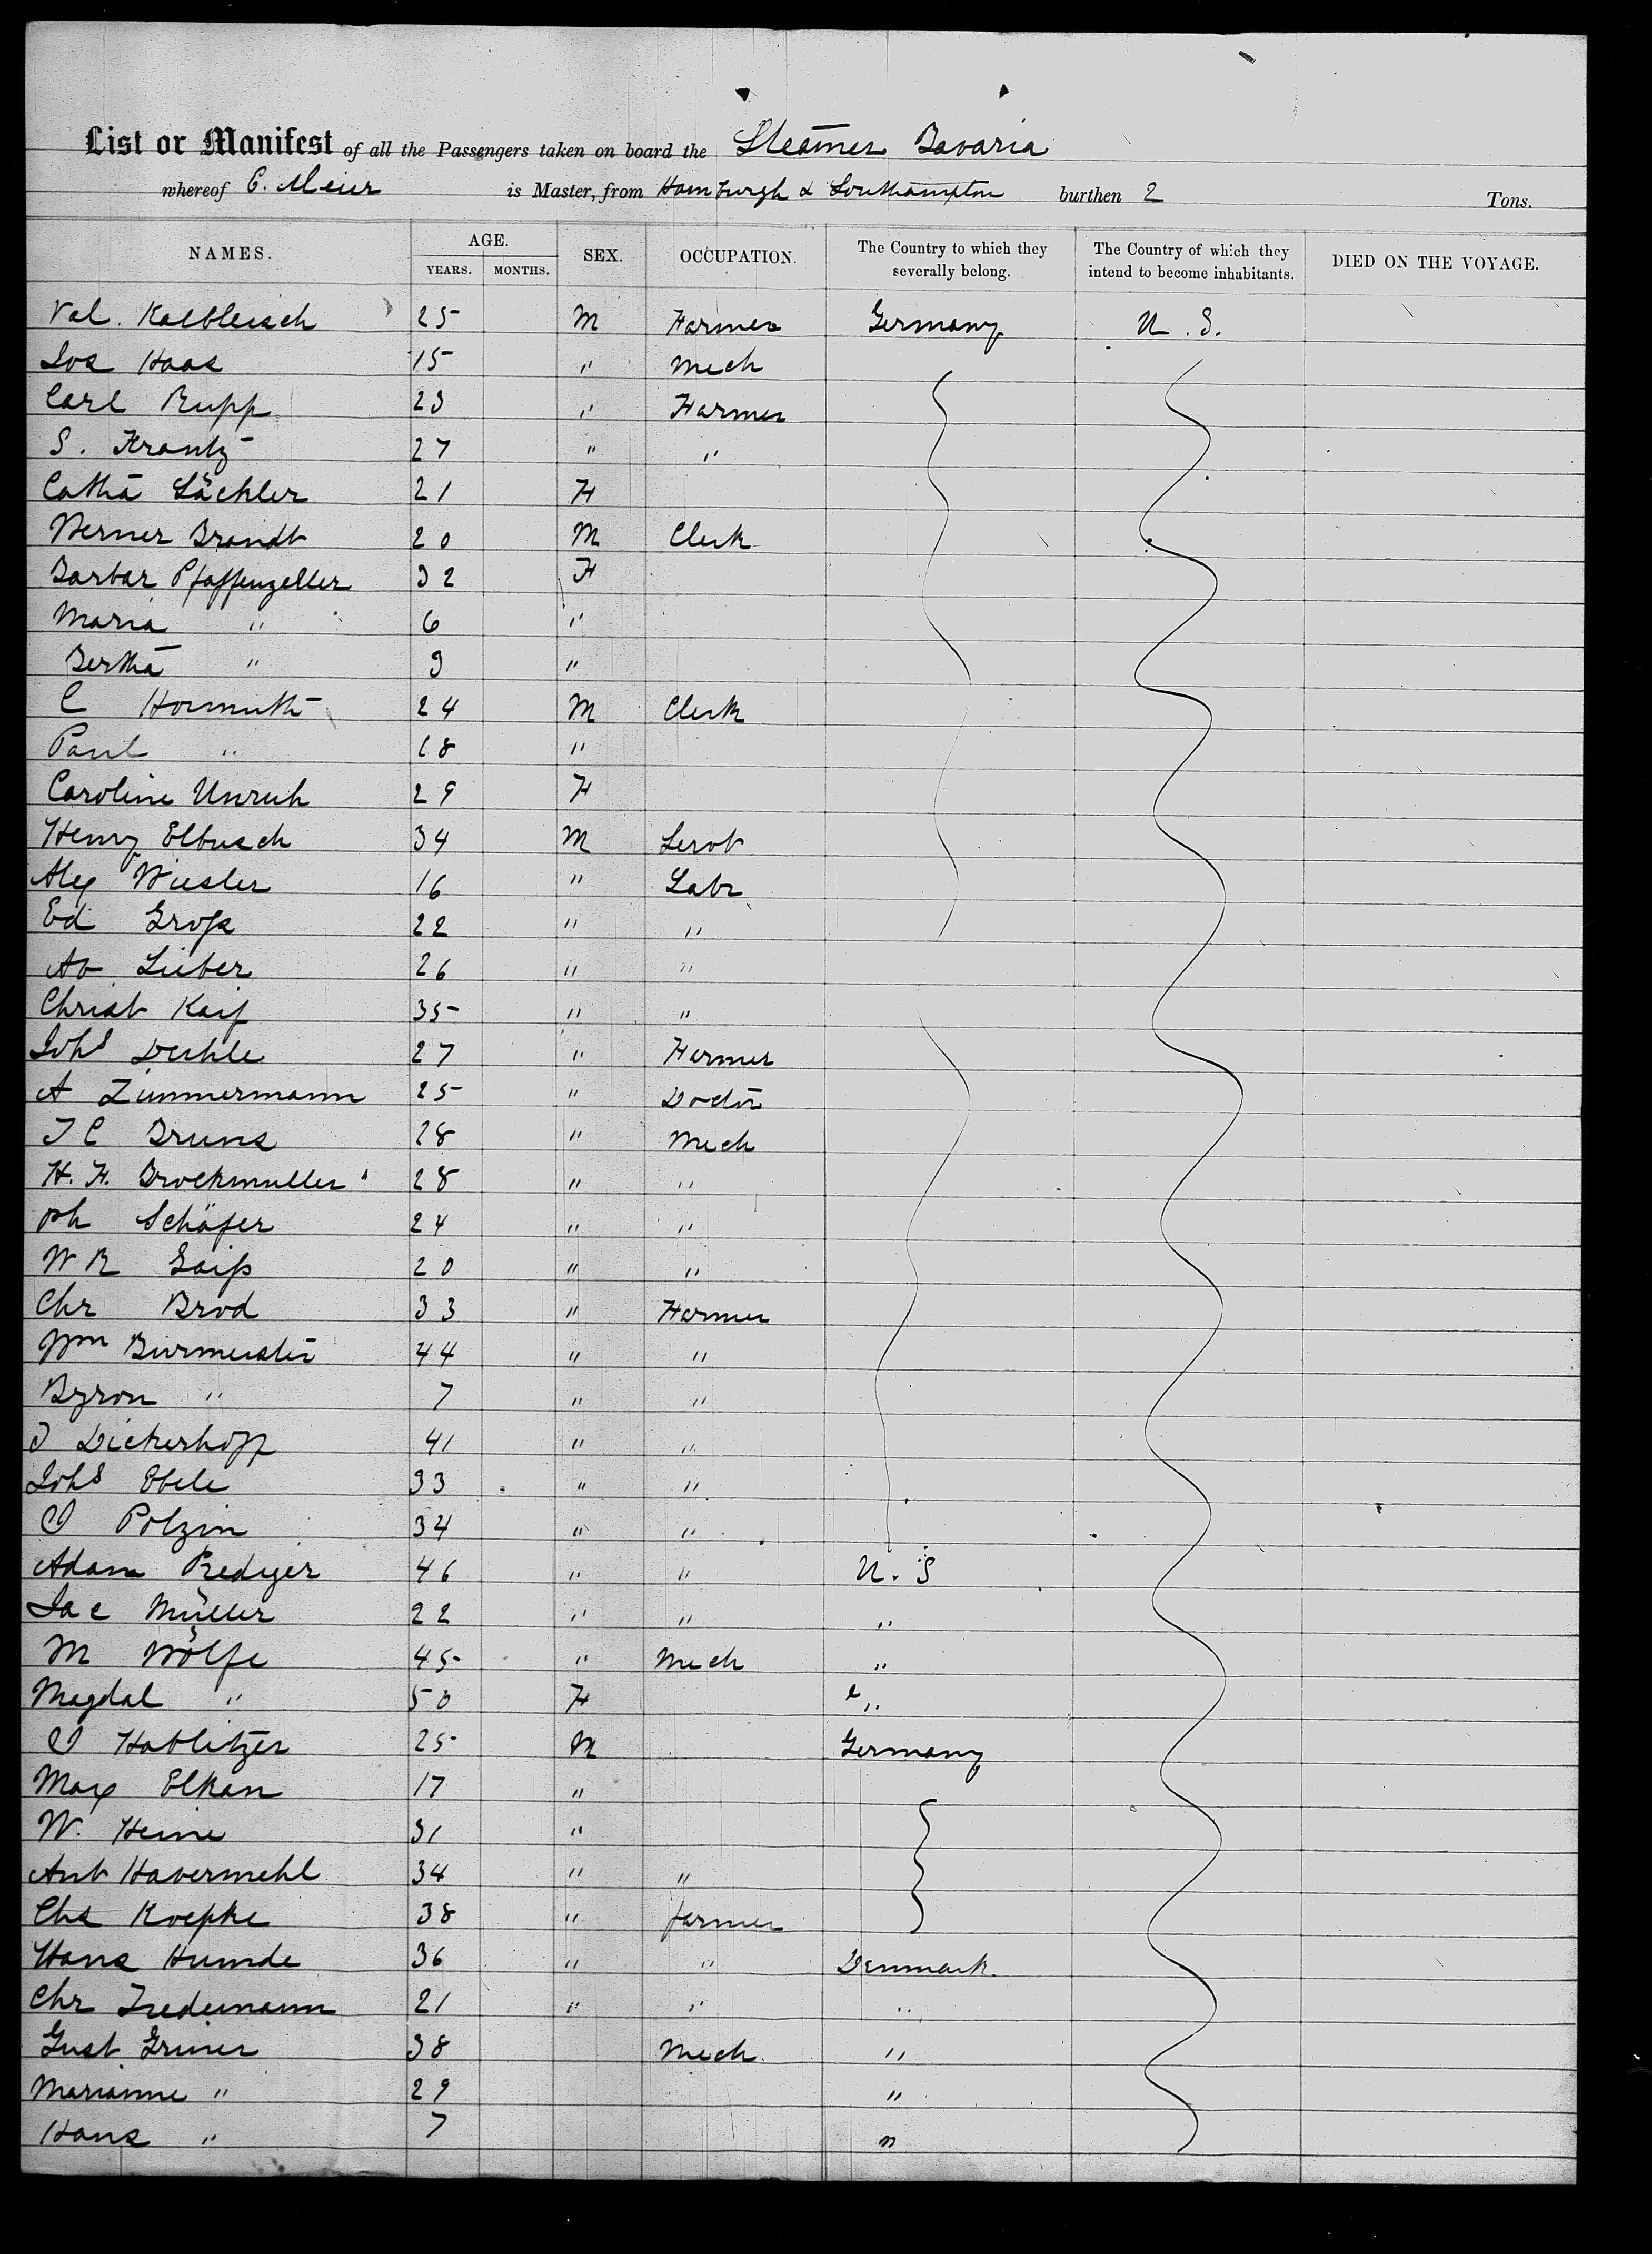 List or Manifest of all the Passengers taken on board the Steamer Bavaria
whereof E. Meier is Master, from Hamburgh & Southampton burthen 2 Tons.
NAMES. AGE. YEARS. MONTHS. SEX. OCCUPATION. The Country to which they severally belong. The Country of which they intend to become inhabitants. DIED ON THE VOYAGE.
Val. Kalbfleisch 25 M Farmer Germany U. S.
Jos Haas 15 " Mech
Carl Rupp 23 " Farmer
S. Krantz 27 " "
Catha Lächler 21 F
Werner Brandt 20 M Clerk
Barbar Pfaffenzeller 32 F
Maria " 6 "
Bertha " 9 "
C Hormuth 24 M Clerk
Paul " 18 "
Caroline Unruh 29 F
Henry Elbusch 34 M Servt
Alex Wiesler 16 " Labr
Ed Groß 22 " "
Lieber 26 " "
Christ Kaif 35 " "
Johs Deihle 27 " Farmer
A Zimmermann 25 " Doctor
J C Bruns 28 " Mech
H. F. Brockmuller 28 " "
Ph Schäfer 24 " "
W R Gaiß 20 " "
Chr Brod 33 " Farmer
Wm Burmeister 44 " "
Byron " 7 " "
J Dickerhoff 41 " "
Johs Ebele 33 " "
O Polzin 34 " "
Adam Rediger 46 " " U. S
Jac Müller 22 " " "
M Wölfe 45 " Mech "
Magdal " 50 F "
O Hablitzer 25 M Germany
Max Elkan 17 "
W. Heine 31 "
Ant Havermehl 34 " "
Chs Koepke 38 " farmer
Hans Humde 36 " " Denmark.
Chr Tiedemann 21 " " "
Gust Griner 38 Mech "
Marianne " 29 "
Hans " 7 "